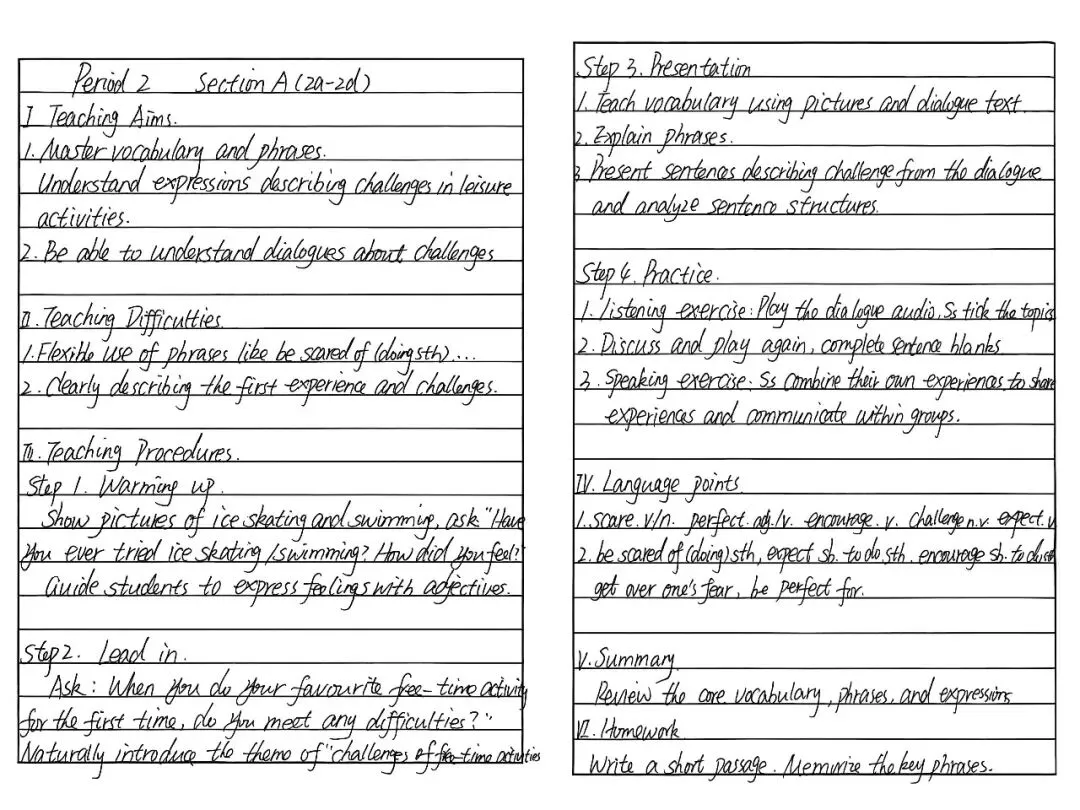 Period 2 Section A (2a-2d)
I Teaching Aims.
1. Master vocabulary and phrases.
Understand expressions describing challenges in leisure
activities.
2. Be able to understand dialogues about challenges
II. Teaching Difficulties
1. Flexible use of phrases like be scared of (doing sth) ...
2. Clearly describing the first experience and challenges.
III. Teaching Procedures.
Step 1. Warming up.
Show pictures of ice skating and swimming, ask "Have
you ever tried ice skating/swimming? How did you feel?"
Guide students to express feelings with adjectives.
Step 2. Lead in.
Ask: When you do your favourite free-time activity
for the first time, do you meet any difficulties?"
Naturally introduce the theme of "challenges of free-time activities
Step 3. Presentation
1. Teach vocabulary using pictures and dialogue text.
2. Explain phrases.
3. Present sentences describing challenge from the dialogue
and analyze sentence structures.
Step 4. Practice.
1. listening exercise: Play the dialogue audio, Ss tick the topics
2. Discuss and play again, complete sentence blanks
3. Speaking exercise: Ss combine their own experiences to share
experiences and communicate within groups.
IV. Language points
1. scare. v/n. perfect. adj./v. encourage. v. challenge n.v. expect. v
2. be scared of (doing) sth, expect sb. to do sth. encourage sb. to do sth
get over one's fear, be perfect for.
V. Summary
Review the core vocabulary, phrases, and expressions
VI. Homework
Write a short passage. Memorize the key phrases.